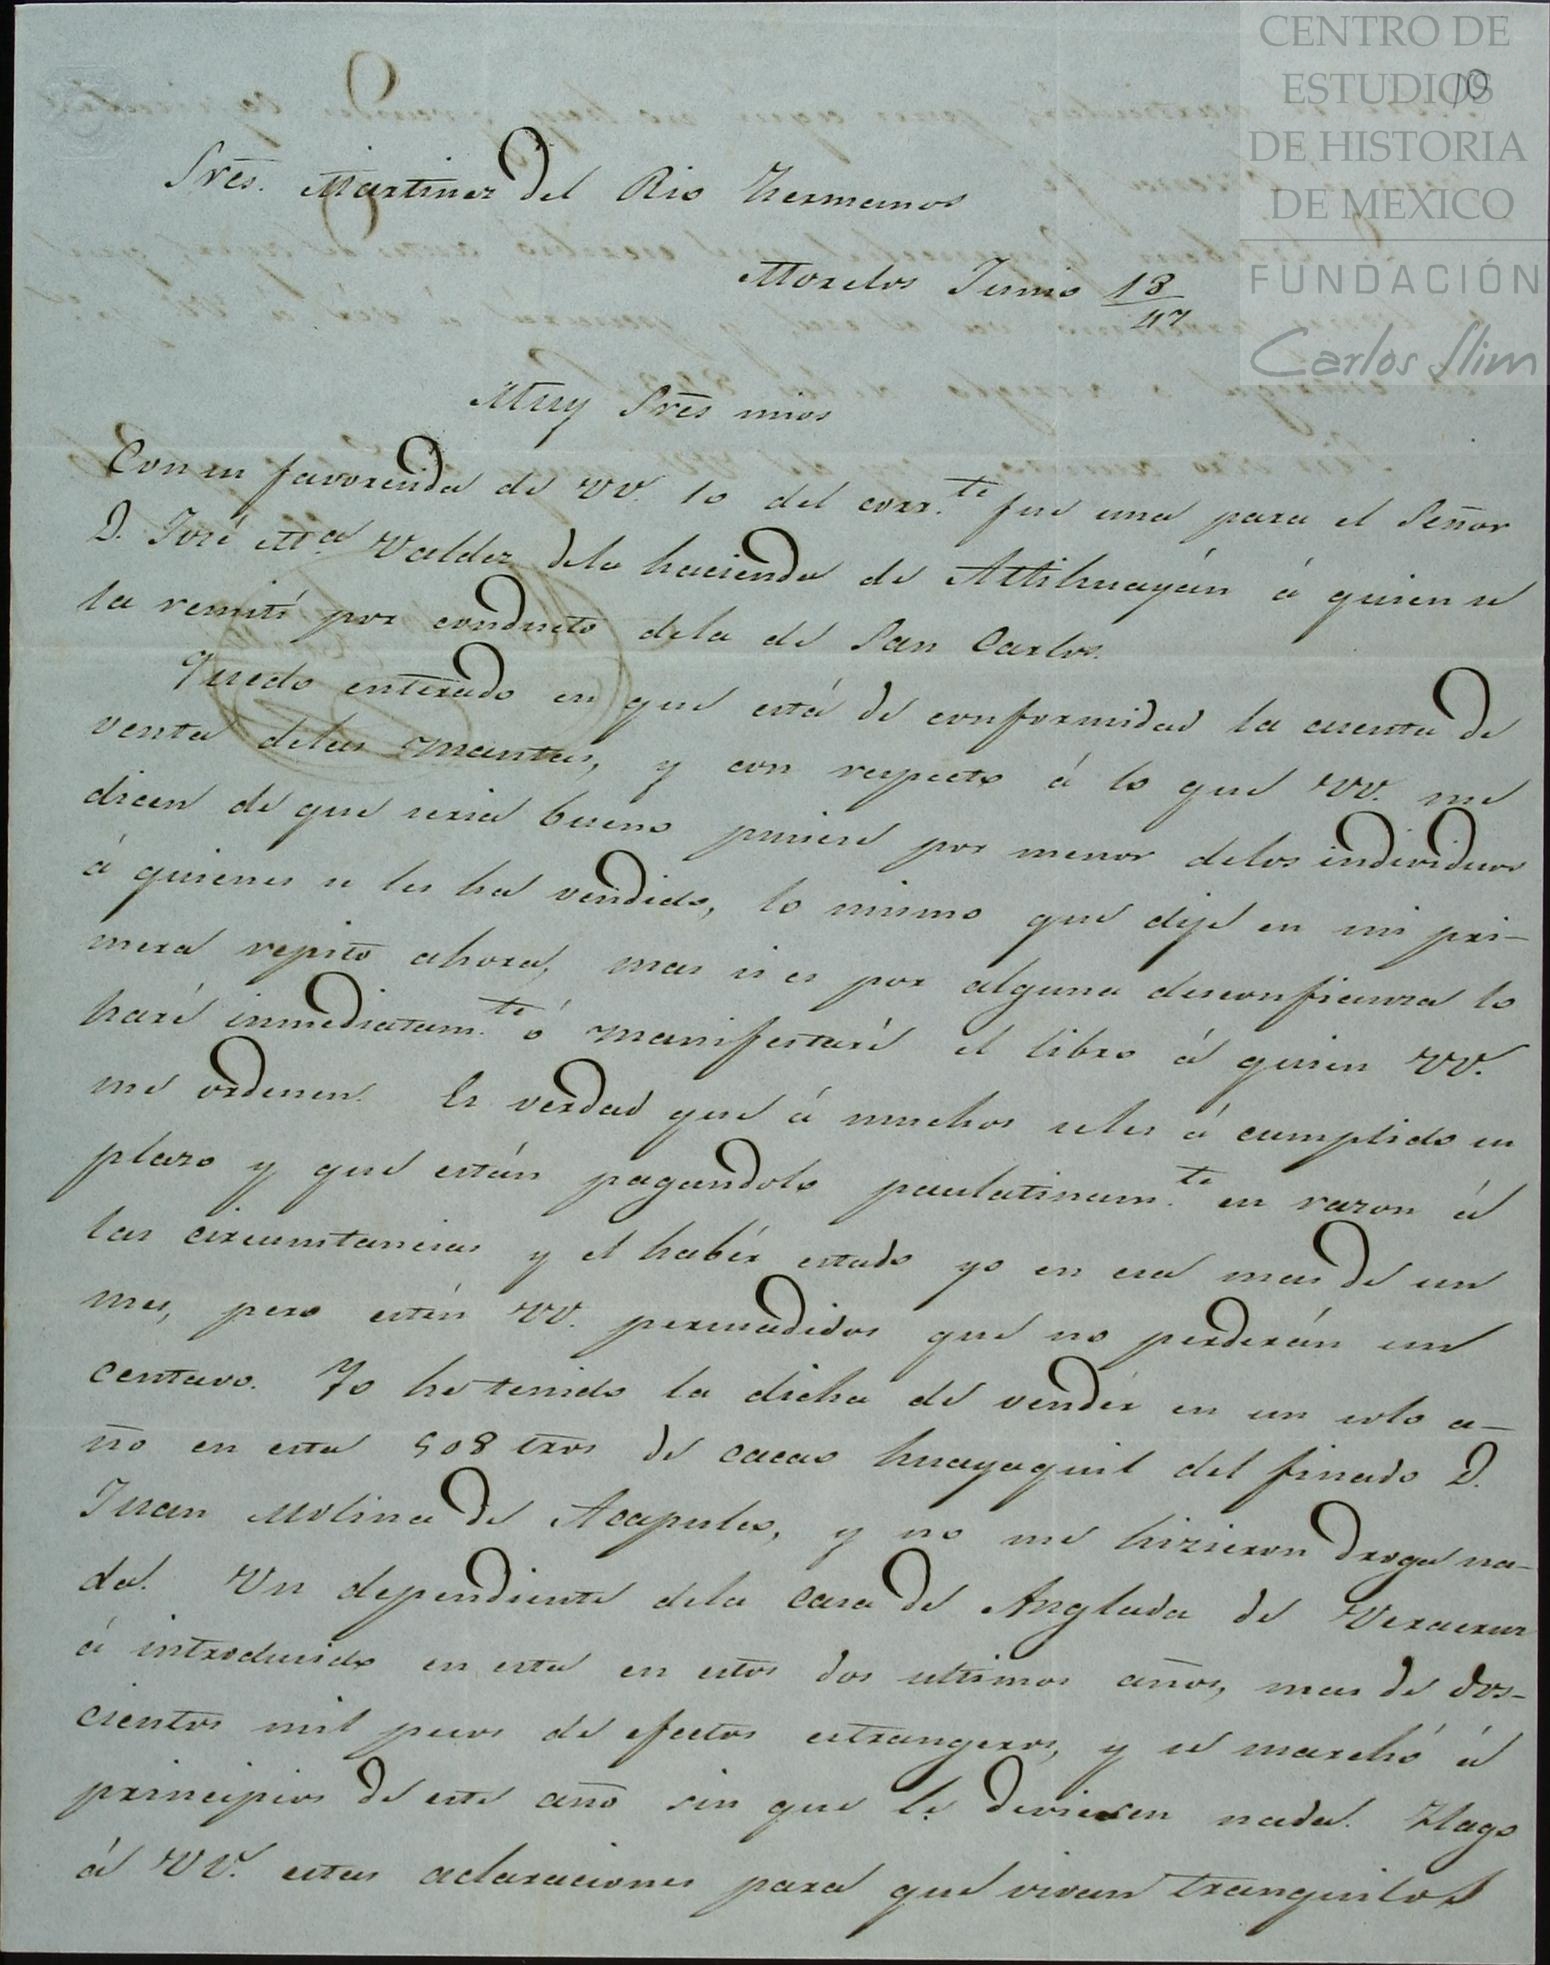 CENTRO DE
ESTUDIOS
DE HISTORIA
DE MEXICO
FUNDACIÓN
Carlos Slim
10
Sres. Martinez del Rio hermanos
Morelos Junio 18/47
Muy Sres mios
Con su favorecida de VV. 10 del corr.te fue una para el Señor
D. José Ma Valdez dela hacienda de Atlihuayán á quien se
la remití por conducto dela de San Carlos.
Quedo enterado en que está de conformidad la cuenta de
venta delas mantas, y con respecto á lo que VV. me
dicen de que seria bueno pusiese por menor delos individuos
á quienes se les ha vendido, lo mismo que dije en mi pri-
mera repito ahora, mas si es por alguna desconfianza lo
haré inmediatam.te ó manifestaré el libro á quien VV.
me ordenen. Es verdad que á muchos seles á cumplido su
plazo y que están pagandolo paulatinam.te en razon á
las circumstancias y el habér estado yo en esa mas de un
mes, pero estén VV. persuadidos que no perderán un
centavo. Yo he tenido la dicha de vendér en un solo a-
ño en esta 508 tros de cacao huayaquil del finado D.
Juan Molina de Acapulco, y no me hizieron droga na-
da. Un dependiente dela casa de Anglada de Veracruz
á introducido en esta en estos dos ultimos años, mas de dos-
cientos mil pesos de efectos estrangeros, y se marchó á
principios de este año sin que le deviesen nada. Hago
á VV. estas aclaraciones para que vivan tranquilos